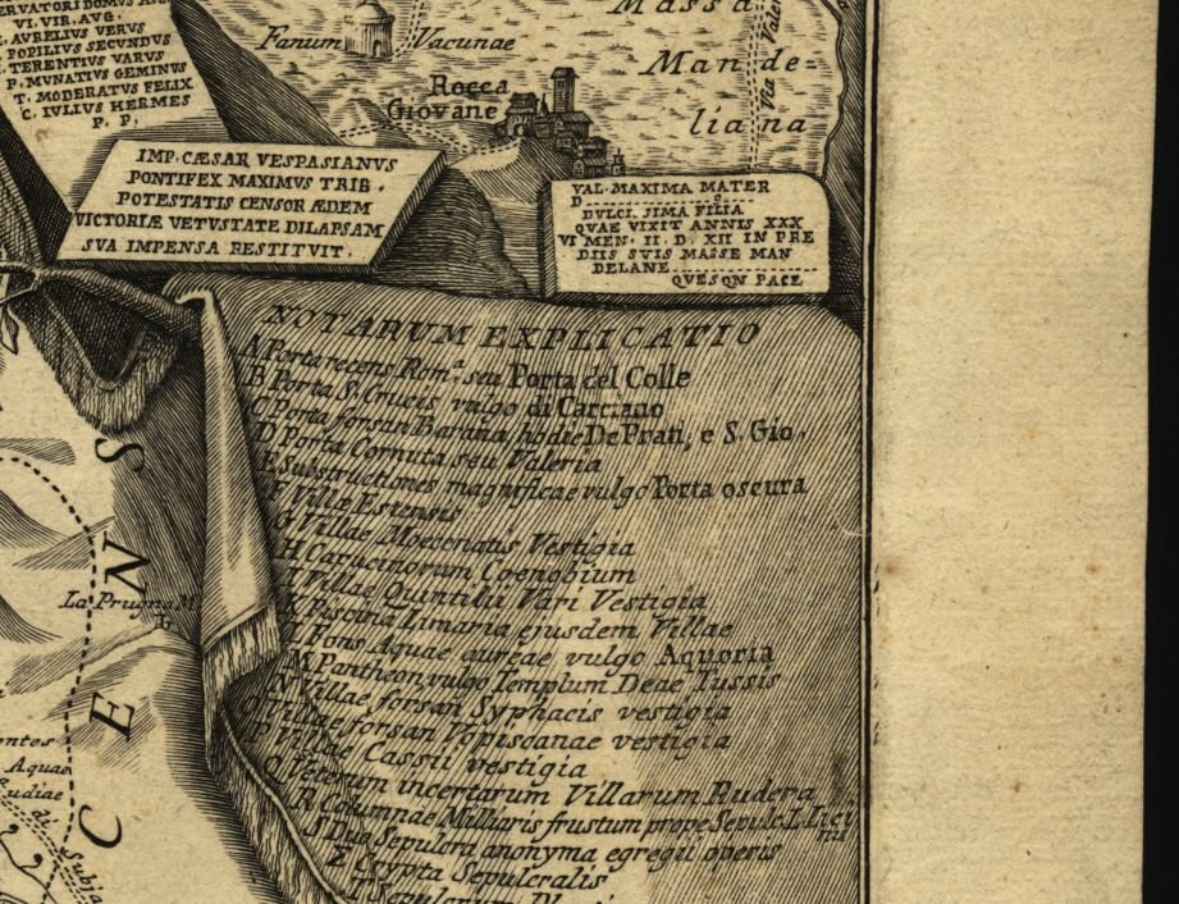 VI. VIR. AVG.
AVRELIVS VERVS
POPILIVS SECVNDVS
TERENTIVS VARVS
P. MVNATIVS GEMINVS
T. MODERATVS FELIX
C. IVLIVS HERMES
P. P.
Fanum Vacunae
Rocca
Giovane
Massa
Man de=
lia na
Via Valer
IMP. CÆSAR VESPASIANVS
PONTIFEX MAXIMVS TRIB.
POTESTATIS CENSOR ÆDEM
VICTORIÆ VETVSTATE DILAPSAM
SVA IMPENSA RESTITVIT.
VAL. MAXIMA MATER
D
DVLCI. SIMA FILIA
QVAE VIXIT ANNIS XXX
VI MEN. II. D. XII IN PRE
DIIS SVIS MASSE MAN
DELANE
QVESQN PACE
NOTARUM EXPLICATIO
A Porta recens Rom.ª seu Porta del Colle
B Porta S. Crucis vulgo di Carciano
C Porta forsan Barana, hodie De Prati, e S. Gio.
D Porta Cornuta seu Valeria
E Substructiones magnificae vulgo Porta oscura
F Villæ Estensis
G Villae Moecenatis Vestigia
H Capucinorum Coenobium
I Villae Quintilii Vari Vestigia
K Piscina Limaria ejusdem Villae
L Fons Aquae aureae vulgo Aquoria
M Pantheon vulgo Templum Deae Tussis
N Villae forsan Syphacis vestigia
O Villae forsan Vopiscanae vestigia
P Villae Cassii vestigia
Q Veterum incertarum Villarum Rudera
R Columnae Milliaris frustum prope Sepulc. L. Lici
nii
S Duo Sepulcra anonyma egregii operis
Z Crypta Sepulcralis
T Sepulcrum
S
N
E
C
La Prugna M.
entes
Aquae
udiae
di
Subja